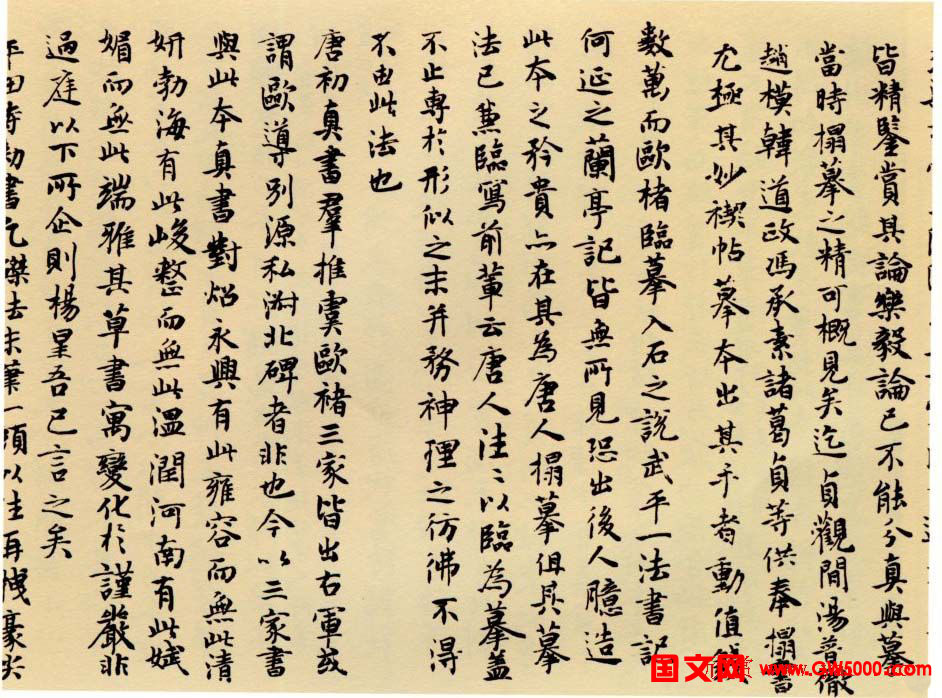 皆精鑒賞其論樂毅論已不能分真與摹
當時搨摹之精可概見矣迄貞觀間湯普徹
趙模韓道政馮承素諸葛貞等供奉搨書
尤極其妙禊帖摹本出其手者動值
數萬而歐褚臨摹入石之說武平一法書記
何延之蘭亭記皆無所見恐出後人臆造
此本之矜貴亦在其為唐人搨摹但其摹
法已兼臨寫前輩云唐人往〻以臨為摹蓋
不止專於形似之末并務神理之彷彿不得
不由此法也
唐初真書羣推虞歐褚三家皆出右軍或
謂歐導別源私淑北碑者非也今以三家書
與此本真書對炤永興有此雍容而無此清
妍勃海有此峻整而無此溫潤河南有此娬
媚而無此端雅其草書寓變化於謹嚴非
過庭以下所企則楊星吾已言之矣
国文网 www.GW5000.com